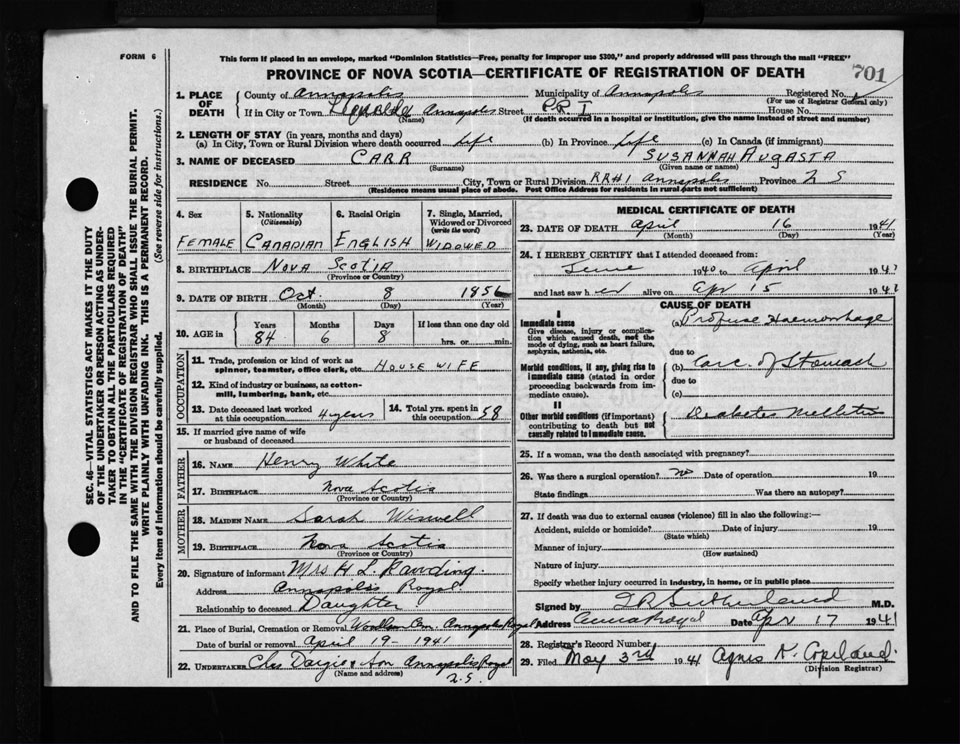 FORM 6
This form if placed in an envelope, marked "Dominion Statistics—Free, penalty for improper use $300," and properly addressed will pass through the mail "FREE"
PROVINCE OF NOVA SCOTIA—CERTIFICATE OF REGISTRATION OF DEATH
701
SEC. 46—VITAL STATISTICS ACT MAKES IT THE DUTY
OF THE UNDERTAKER OR PERSON ACTING AS UNDER-
TAKER TO OBTAIN ALL THE PARTICULARS REQUIRED
IN THE "CERTIFICATE OF REGISTRATION OF DEATH"
AND TO FILE THE SAME WITH THE DIVISION REGISTRAR WHO SHALL ISSUE THE BURIAL PERMIT.
WRITE PLAINLY WITH UNFADING INK. THIS IS A PERMANENT RECORD.
Every item of information should be carefully supplied. (See reverse side for instructions.)
1. PLACE OF DEATH County of Annapolis Municipality of Annapolis Registered No.
(For use of Registrar General only)
If in City or Town Annapolis Street R.R. 1 House No.
(Name) (If death occurred in a hospital or institution, give the name instead of street and number)
2. LENGTH OF STAY (in years, months and days)
(a) In City, Town or Rural Division where death occurred Life (b) In Province Life (c) In Canada (if immigrant)
3. NAME OF DECEASED CARR SUSANNAH AUGASTA
(Surname) (Given name or names)
RESIDENCE No. Street City, Town or Rural Division RR#1 Annapolis Province N S
(Residence means usual place of abode. Post Office Address for residents in rural parts not sufficient)
4. Sex
FEMALE
5. Nationality
(Citizenship)
CANADIAN
6. Racial Origin
ENGLISH
7. Single, Married,
Widowed or Divorced
(write the word)
WIDOWED
8. BIRTHPLACE NOVA SCOTIA
(Province or Country)
9. DATE OF BIRTH Oct. 8 1856
(Month) (Day) (Year)
10. AGE in Years Months Days If less than one day old
84 6 8 hrs. or min.
OCCUPATION
11. Trade, profession or kind of work as
spinner, teamster, office clerk, etc. HOUSE WIFE
12. Kind of industry or business, as cotton-
mill, lumbering, bank, etc.
13. Date deceased last worked
at this occupation 4 years
14. Total yrs. spent in
this occupation 58
15. If married give name of wife
or husband of deceased
FATHER
16. NAME Henry White
17. BIRTHPLACE Nova Scotia
(Province or Country)
MOTHER
18. MAIDEN NAME Sarah Wiswell
19. BIRTHPLACE Nova Scotia
(Province or Country)
20. Signature of informant Mrs H. L.
Address Annapolis Royal
Relationship to deceased Daughter
21. Place of Burial, Cremation or Removal Annapolis Royal
Date of burial or removal April 19 - 1941
22. UNDERTAKER Chas Dargie & Son Annapolis Royal
(Name and address) N.S.
MEDICAL CERTIFICATE OF DEATH
23. DATE OF DEATH April 16 1941
(Month) (Day) (Year)
24. I HEREBY CERTIFY that I attended deceased from:
June 1940 to April 1941
and last saw her alive on Apr 15 1941
CAUSE OF DEATH
I
Immediate cause
Give disease, injury or complica-
tion which caused death, not the
mode of dying, such as heart failure,
asphyxia, asthenia, etc.
(a) Profuse Haemorrhage
due to
Morbid conditions, if any, giving rise to
immediate cause (stated in order
proceeding backwards from im-
mediate cause).
(b) Carc. of Stomach
due to
(c)
II
Other morbid conditions (if important)
contributing to death but not
causally related to immediate cause.
Diabetes Mellitus
25. If a woman, was the death associated with pregnancy?
26. Was there a surgical operation? no Date of operation 19
State findings Was there an autopsy?
27. If death was due to external causes (violence) fill in also the following:—
Accident, suicide or homicide? Date of injury 19
(State which)
Manner of injury
(How sustained)
Nature of injury
Specify whether injury occurred in industry, in home, or in public place
Signed by Sutherland M.D.
Address Anna Royal Date Apr 17 1941
28. Registrar's Record Number
29. Filed May 3rd 1941 Agnes K. Copeland.
(Division Registrar)